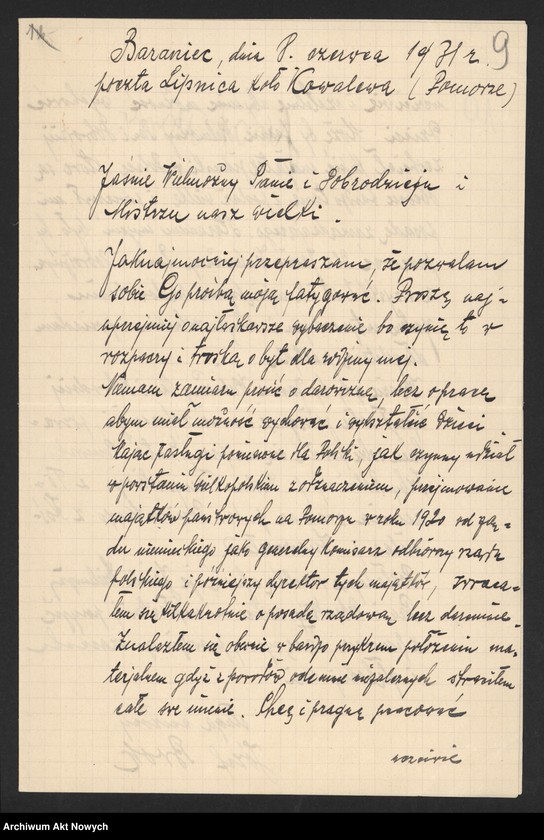 9
Baraniec, dnia 8. czerwca 1931 r.
poczta Lipnica koło Kowalewa (Pomorze)
Jaśnie Wielmożny Panie i Dobrodzieju i
Mistrzu nasz wielki.
Jaknajmocniej przepraszam, że pozwalam
sobie Go prośbą moją fatygować. Proszę naj-
uprzejmiej o najłaskawsze wybaczenie bo czynię to w
rozpaczy i troską o byt dla rodziny mej.
Niemam zamiaru prosić o darowiznę, lecz o pracę
abym miał możność wychować i wykształcić dzieci.
Mając zasługi położone dla Polski, jak czynny udział
w powstaniu wielkopolskim z odznaczeniem, przejmowanie
majątków państwowych na Pomorzu w roku 1920 od rzą-
du niemieckiego jako generalny komisarz odbiorczy rządu
polskiego i późniejszy dyrektor tych majątków, zwraca-
łem się kilkakrotnie o posadę rządową lecz daremnie.
Znalazłem się obecnie w bardzo przykrem położeniu ma-
terjalnem gdyż z powodów odemnie niezależnych straciłem
całe swe mienie. Chcę i pragnę pracować
uczciwie
Archiwum Akt Nowych